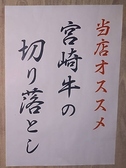 当店オススメ
宮崎牛の
切り落とし